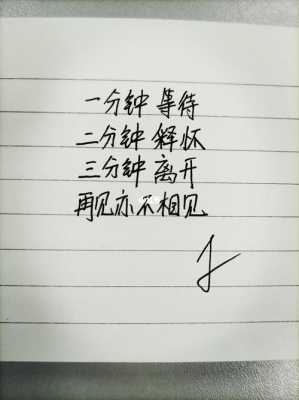 一分钟 等待
二分钟 释怀
三分钟 离开
再见亦不相见